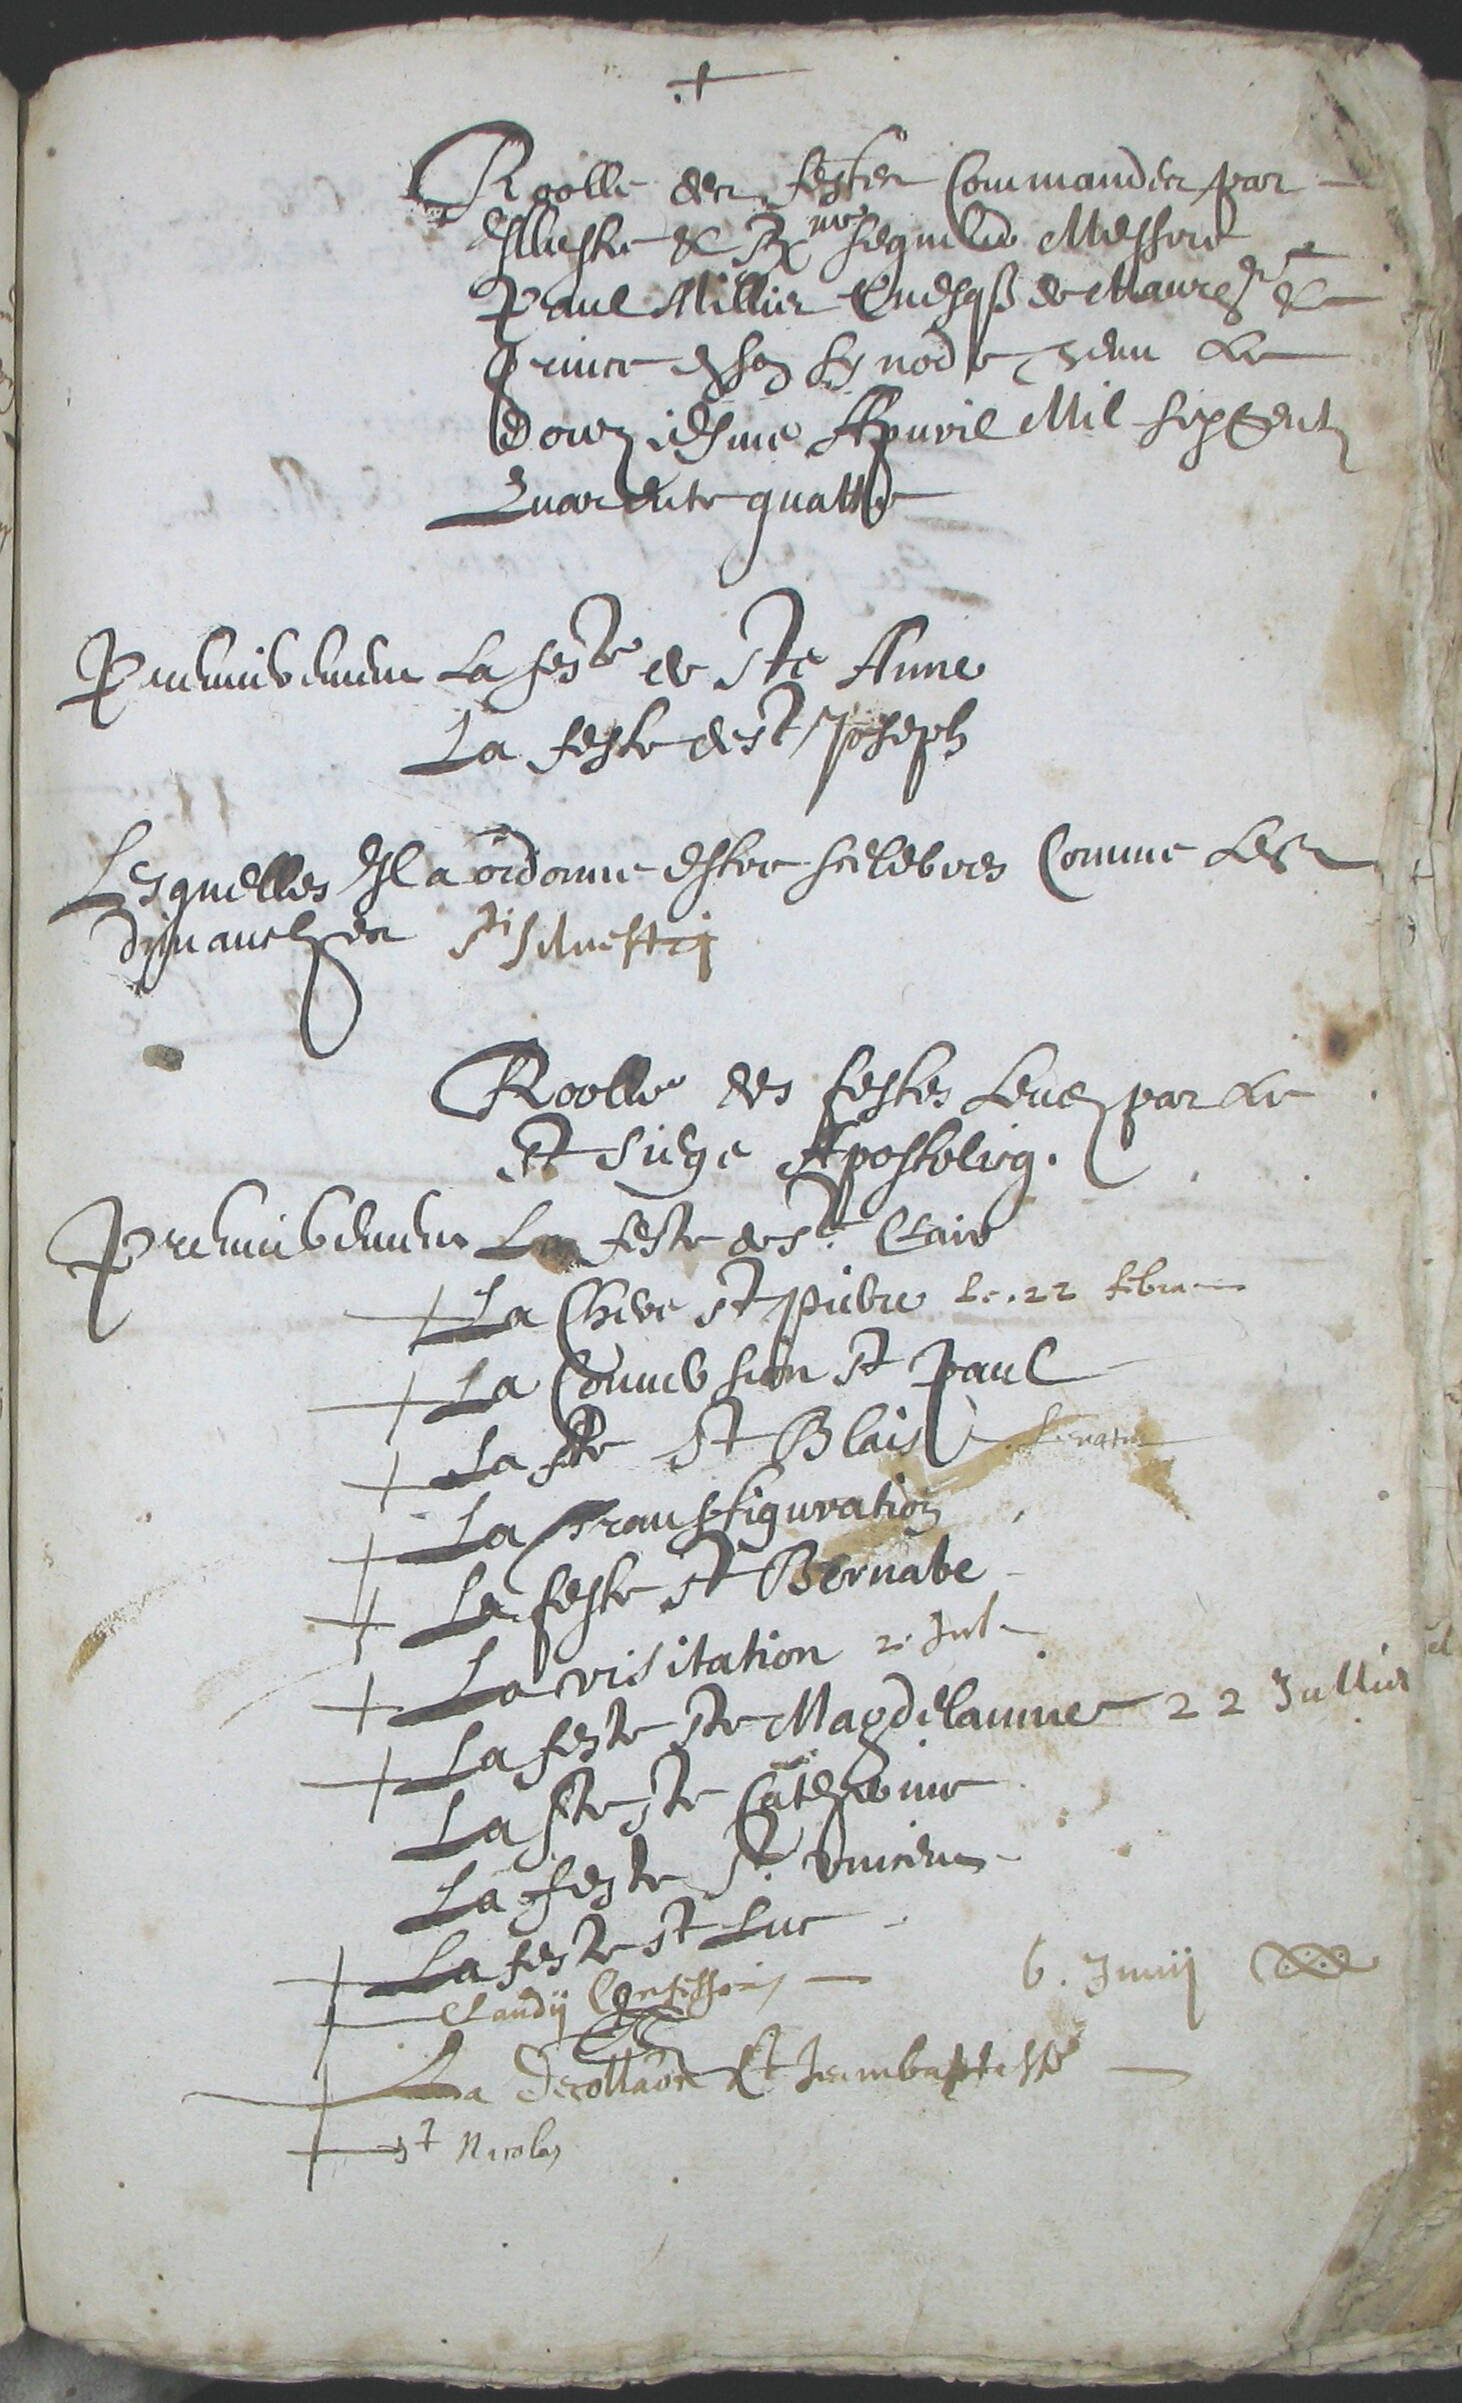 +
Roolle des festes Commandes par
Illustre & Rme seigneur Messire
Paul Millier Euesqs de Maur. &
Prince En son synode tenu Le
Douziesme Apuril Mil six Centz
Quarente quattre
Premierement La feste de Ste Anne
La feste de St Joseph
Lesquelles Il a ordonne estre scelebres Comme Les
dimanches sti Siluestri
Roolle des festes Leues par Le
St Siege Apostolicq.
Premierement La feste de st. Claire
La Chere St pierre Le .22 febru
La Conuersion St Paul
La fste St Blaise
La Transfiguration
La feste St Bernabe
La visitation 2. Jul
La feste Ste Magdelainne 22 Jullier
La fste Ste Catherine
La feste St. vincens
La feste St Luc
Claudij Confessoris 6. Junij
La Decollaon St Jeanbaptiste
st Nicolas